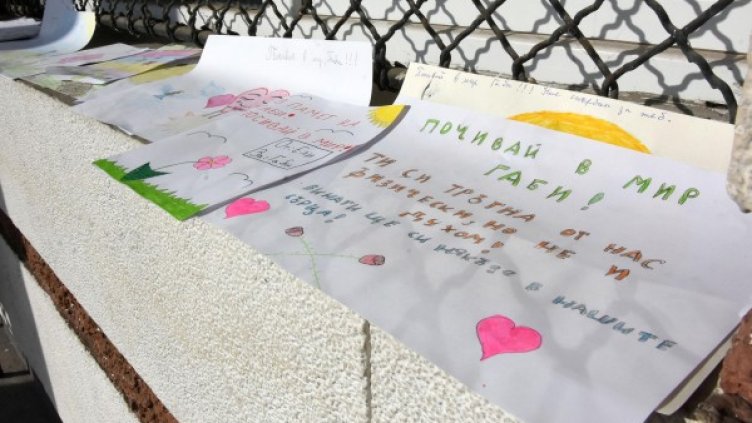 ПОЧИВАЙ В МИР
ГАБИ!
ТИ СИ ТРЪГНА ОТ НАС
ФИЗИЧЕСКИ, НО НЕ И
ДУХОМ!
ВИНАГИ ЩЕ СИ
В НАШИТЕ
СЪРЦА!
НА
ГАБИ!
ПОЧИВАЙ В МИР!
Почивай в мир Габи!!!
за теб.